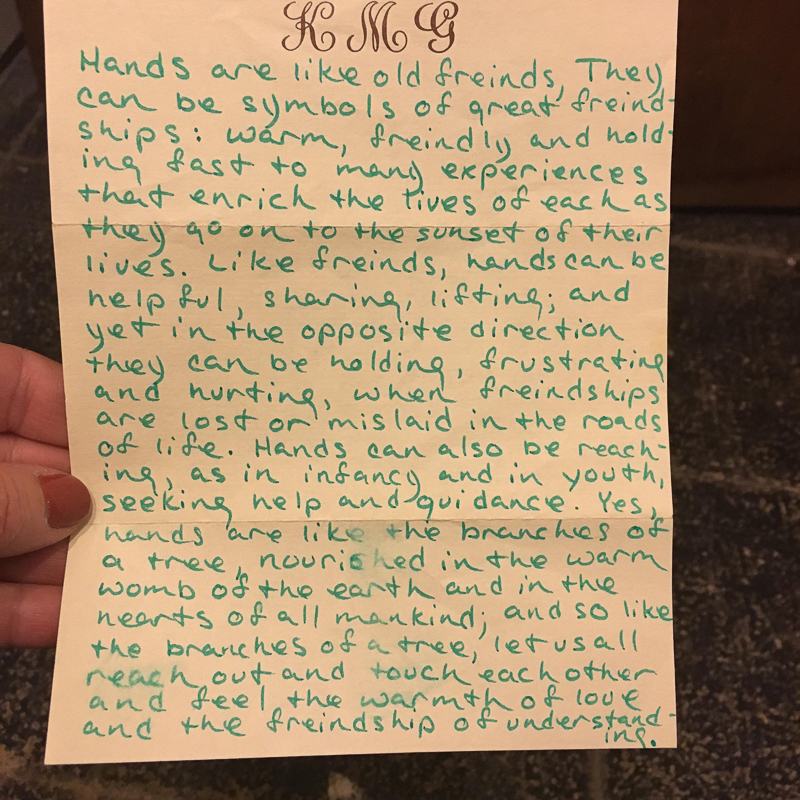 KMG
Hands are like old freinds, They
can be symbols of great freind-
ships: warm, freindly and hold-
ing fast to many experiences
that enrich the lives of each as
they go on to the sunset of their
lives. Like freinds, hands can be
helpful, sharing, lifting; and
yet in the opposite direction
they can be holding, frustrating
and hurting, when freindships
are lost or mislaid in the roads
of life. Hands can also be reach-
ing, as in infancy and in youth,
seeking help and guidance. Yes,
hands are like the branches of
a tree, nourished in the warm
womb of the earth and in the
hearts of all mankind; and so like
the branches of a tree, let us all
reach out and touch each other
and feel the warmth of love
and the freindship of understand-
ing.